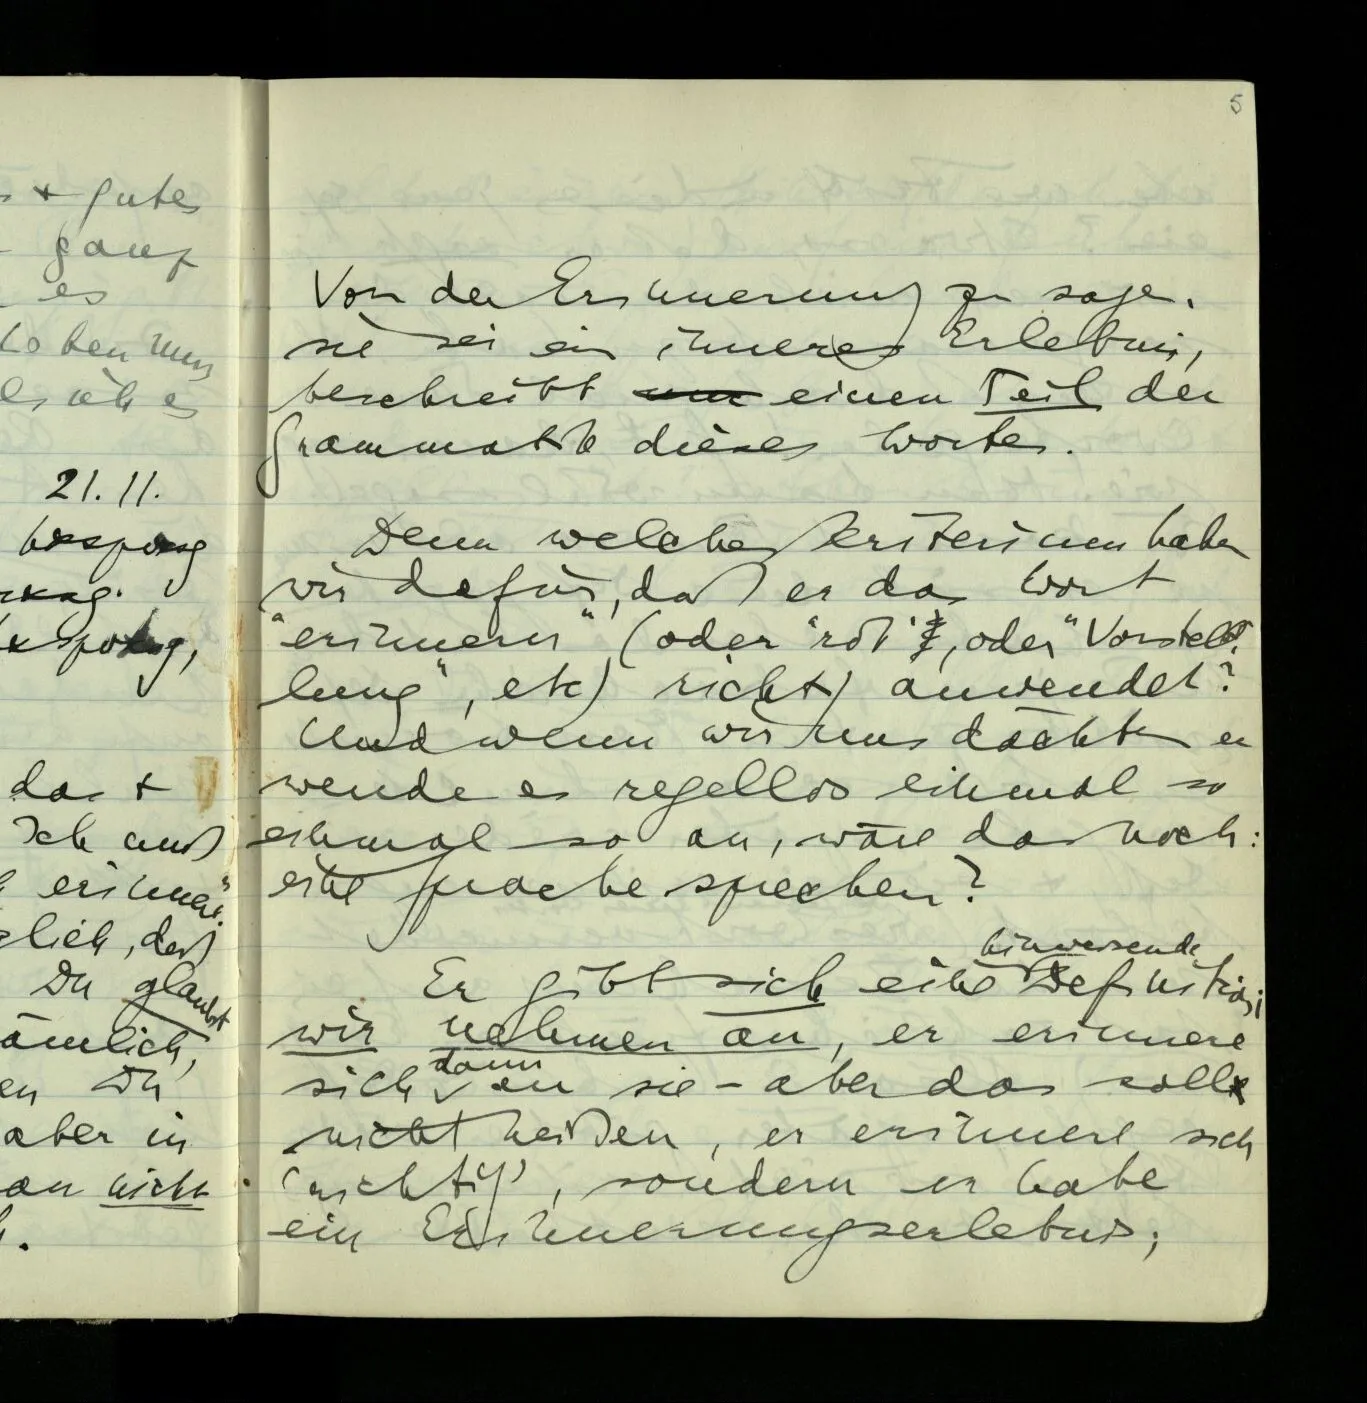 5
+ gutes
ganz
es
21.11.
das +
Ich muß
erinnert".
glich, daß
Du glaubst
nämlich,
en Du
aber in
an nicht
Von der Erinnerung zu sagen,
sie sei ein inneres Erlebnis,
beschreibt nur einen Teil der
Grammatik dieses Wortes.
Denn welches Kriterium haben
wir dafür, daß er das Wort
"erinnern" (oder "rot", oder "Vorstel-
lung", etc) richtig anwendet?
Und wenn wir uns dächten er
wende es regellos einmal so
einmal so an, wäre das noch:
eine Sprache sprechen?
hinweisende
Er gibt sich eine Definition;
wir nehmen an, er erinnere
dann
sich an sie – aber das soll
nicht heißen, er erinnere sich
'richtig', sondern er habe
ein Erinnerungserlebnis;